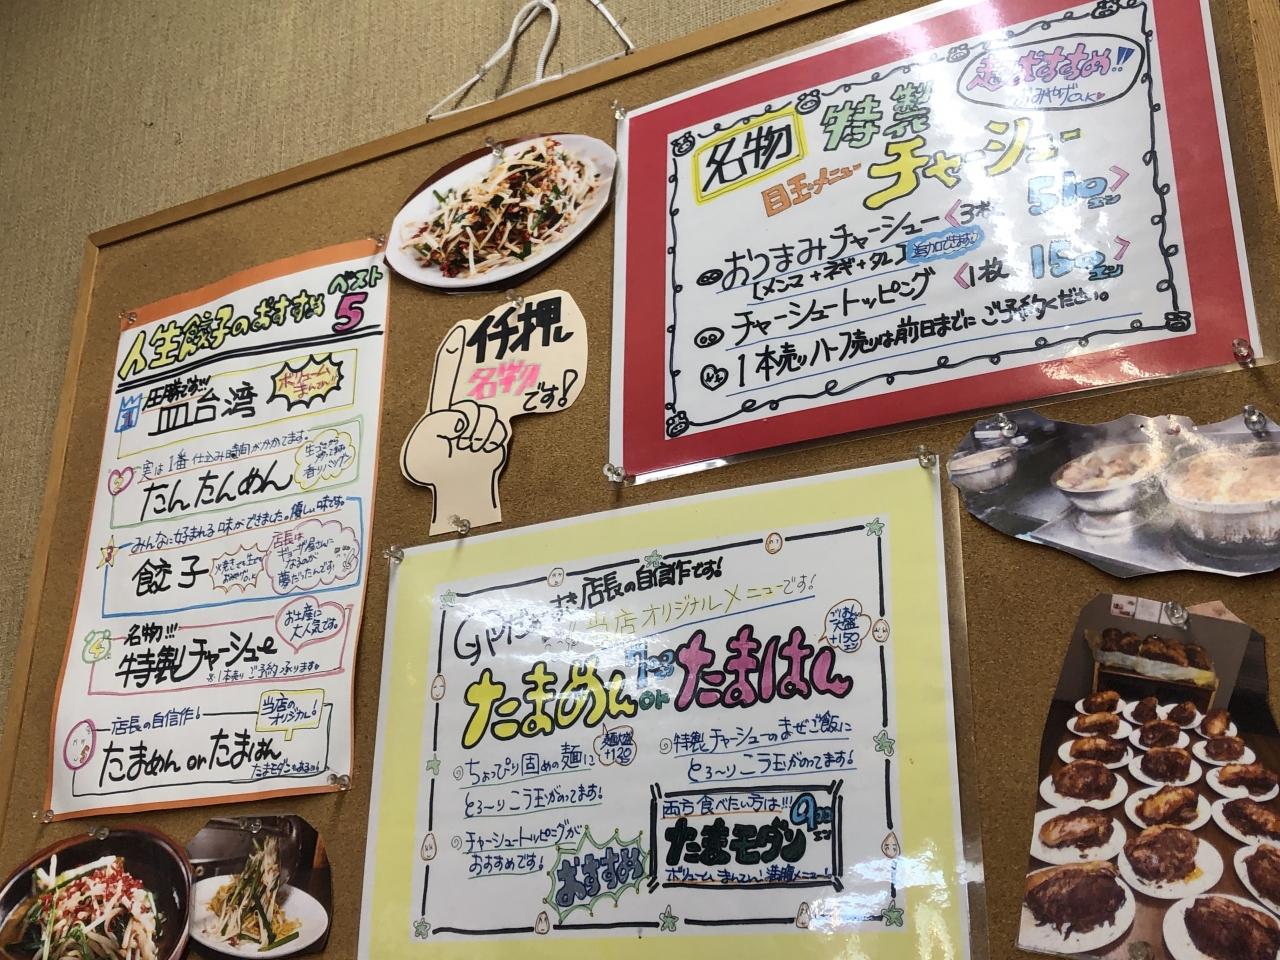 人生餃子のおすすめベスト5
1 圧勝です!!!
皿台湾
ボリュームまんてん!!
2 実は1番仕込み時間がかかてます。
たんたんめん
3 みんなに好まれる味ができました。優しい味です。
餃子
店長は
ギョーザ屋さんに
なるのが
夢だったんです!
4 名物!!!
特製チャーシュー
お土産に
大人気です。
※1本売りご予約承ります。
店長の自信作!
当店の
オリジナル!
たまめん or たまはん
イチ押し
名物
です!
超おすすめ!!
おみやげOK
名物
特製
チャーシュー
目玉メニュー
おつまみチャーシュー<3枚 510エン>
[メンマ+ネギ+タレ]
チャーシュートッピング<1枚 150エン>
1本売りハーフ売りは前日までにご予約ください。
店長の自信作です!
当店オリジナルメニューです!
ごはん
大盛
+150
エン
たまめん or たまはん
麺大盛
+120
エン
ちょっぴり固めの麺に
とろ～りこう玉がのってます!
特製チャーシューのまぜご飯に
とろ～りこう玉がのってます!
チャーシュートッピングが
おすすめです!
おすすめ
両方食べたい方は!!!
たまモダン 900エン
ボリュームまんてん!満腹メニュー!